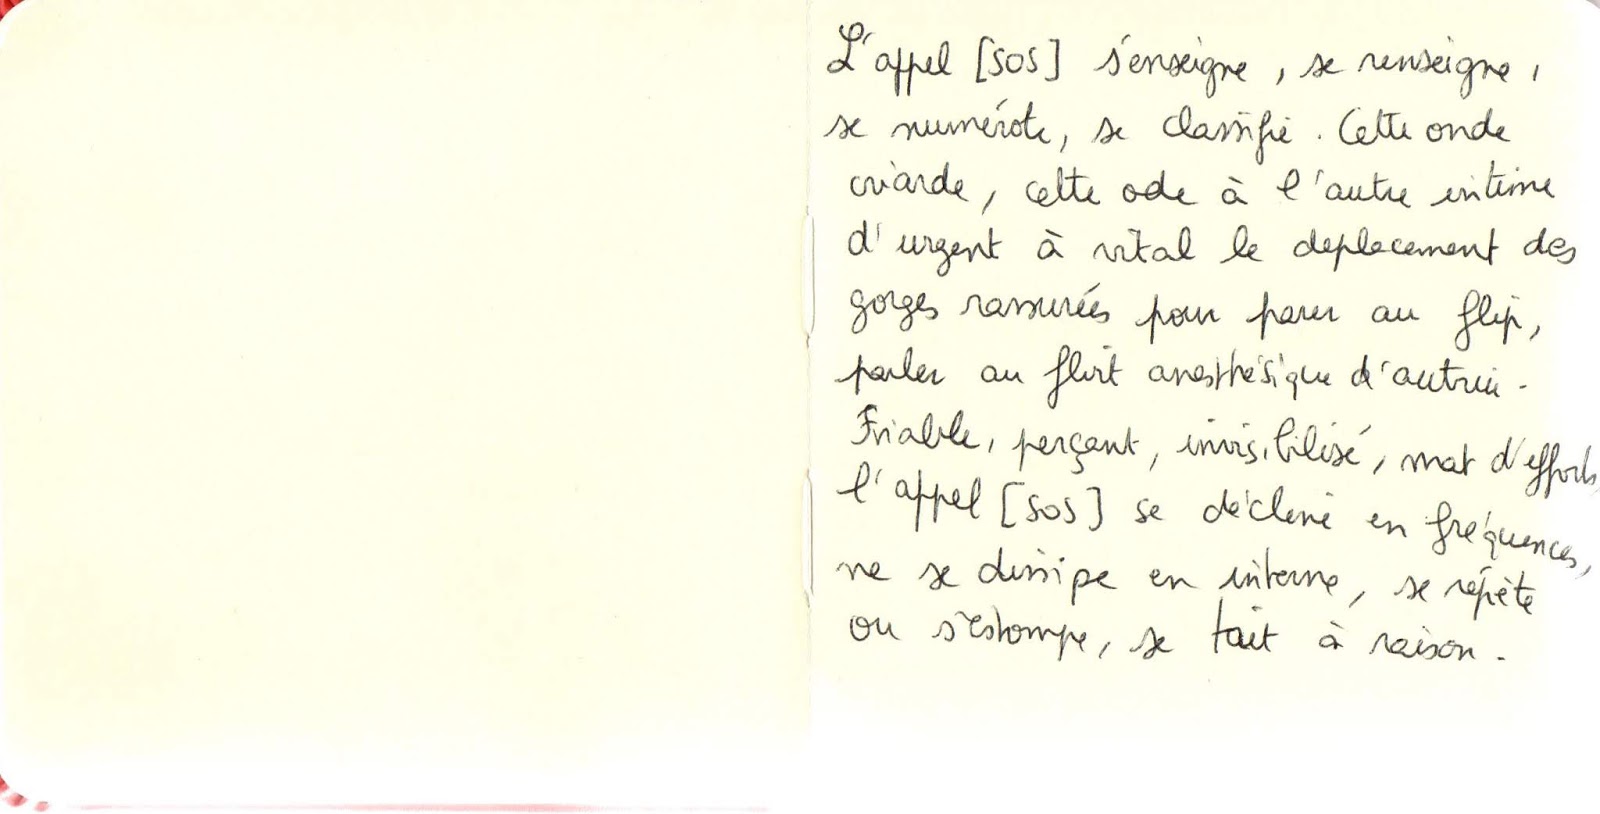 L'appel [SOS] s'enseigne, se renseigne,
se numérote, se classifie. Cette onde
criarde, cette ode à l'autre intime
d'urgent à vital le deplacement des
gorges rassurées pour parer au flip,
parler au flirt anesthésique d'autrui.
Friable, perçant, invisibilisé, mat d'efforts,
l'appel [SOS] se décline en fréquences,
ne se dissipe en interne, se répète
ou s'estompe, se tait à raison.